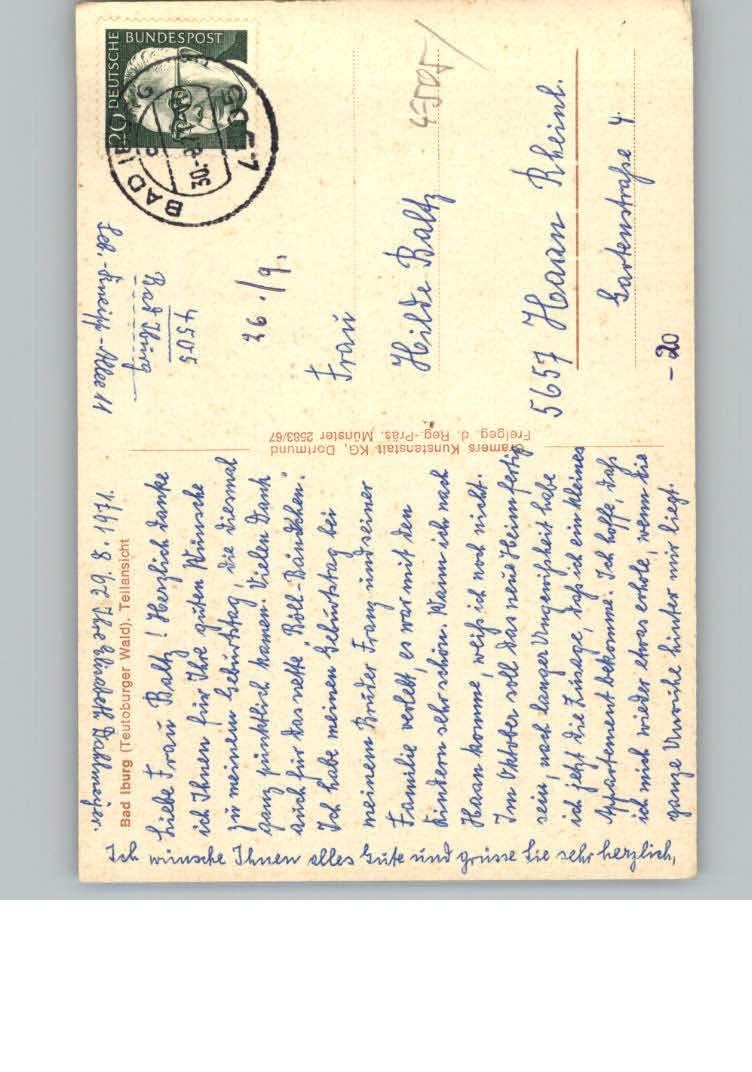 Bad Iburg (Teutoburger Wald). Teilansicht
Liebe Frau Baltz! Herzlich danke
ich Ihnen für Ihre guten Wünsche
zu meinem Geburtstag, die diesmal
ganz pünktlich kamen. Vielen Dank
auch für das nette „Röll-Bändchen."
Ich habe meinen Geburtstag bei
meinem Bruder Franz und seiner
Familie verlebt, es war mit den
Kindern sehr schön. Wann ich nach
Haan komme, weiß ich noch nicht.
Im Oktober soll das neue Heim fertig
sein, nach langer Ungewißheit habe
ich jetzt die Zusage, daß ich ein kleines
Appartement bekomme. Ich hoffe, daß
ich mich wieder etwas erhole, wenn die
ganze Unruhe hinter mir liegt.
Ich wünsche Ihnen alles Gute und grüsse Sie sehr herzlich,
Ihre Elisabeth Dahlmeyer.
8. 1971.
Cramers Kunstanstalt KG, Dortmund
Freigeg. d. Reg.-Präs. Münster 2583/67
DEUTSCHE BUNDESPOST
20
BAD IBURG
30.-8.71
Seb.-Kneipp-Allee 11
4505
Bad Iburg
26./9.
Frau
Hilde Baltz
5657 Haan Rheinl.
Gartenstraße 4.
-20